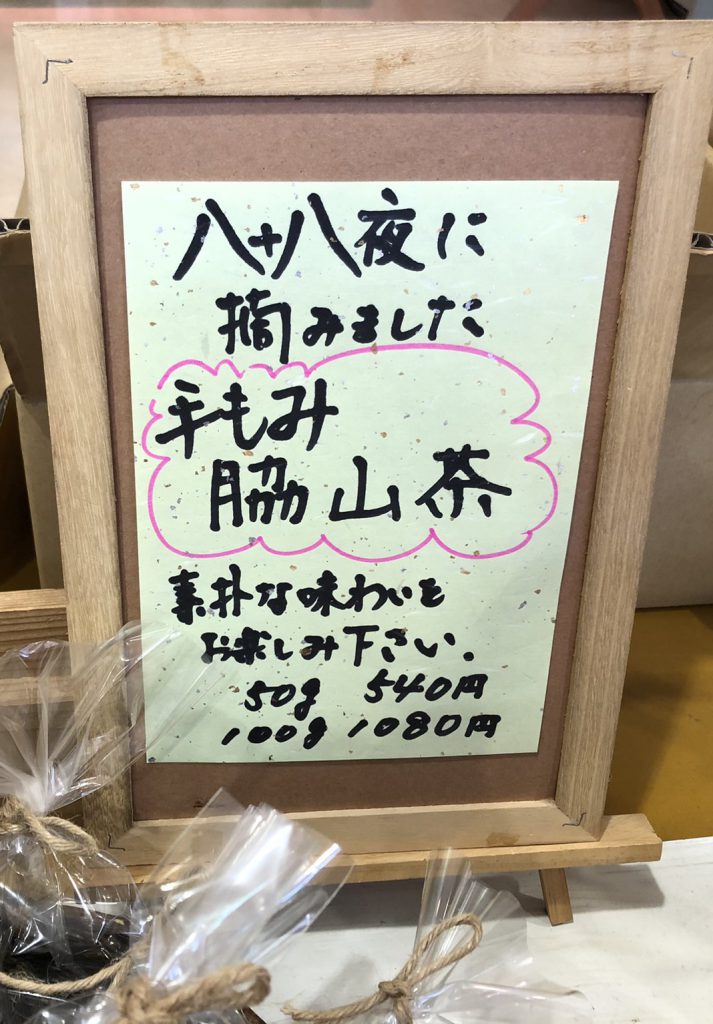 八十八夜に
摘みました
手もみ
脇山茶
素朴な味わいを
お楽しみ下さい。
50g 540円
100g 1080円